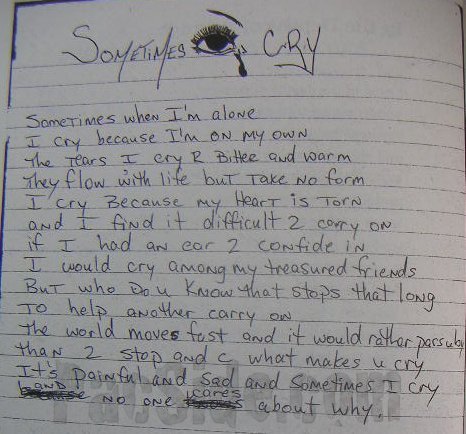 Sometimes 👁 I CRY
Sometimes when I'm alone
I cry because I'm on my own
The tears I cry R Bitter and warm
They flow with life but take no form
I cry Because my Heart is torn
and I find it difficult 2 carry on
if I had an ear 2 confide in
I would cry among my treasured friends
But who do u know that stops that long
To help another carry on
The world moves fast and it would rather pass by
than 2 stop and c what makes u cry
It's painful and sad and sometimes I cry
and no one cares about why.